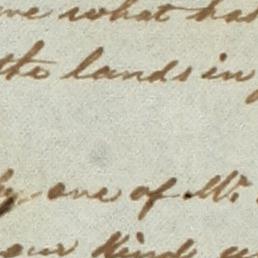 me what has
the lands in
by one of Mr.
our kind